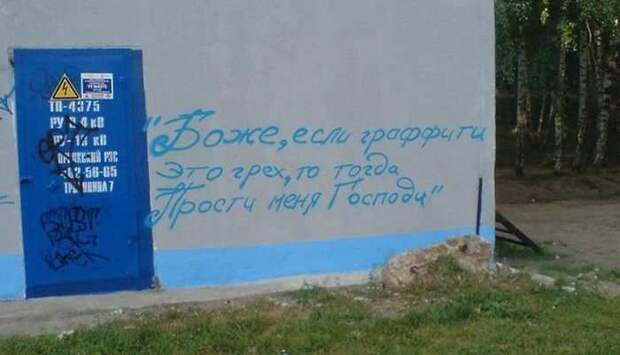 ТП-4375
РУ 0,4 кВ
кВ
РЭС
62-56-65
7
"Боже, если граффити
Это грех, то тогда
Прости меня Господи"